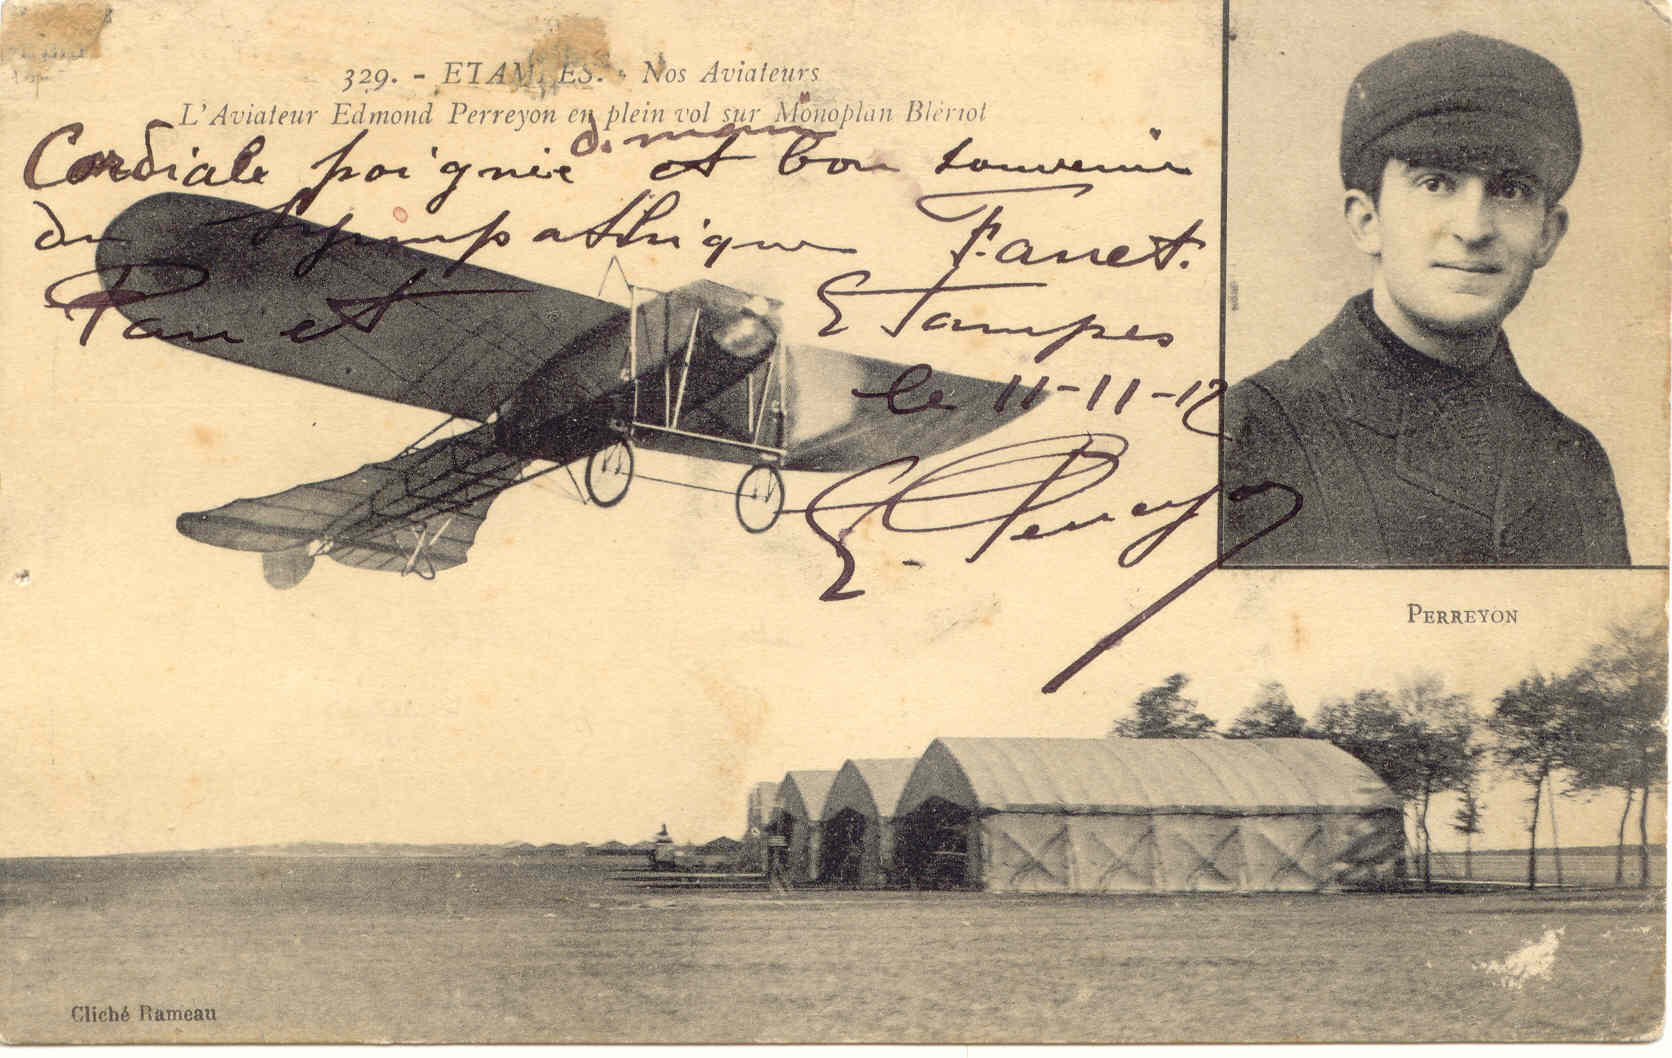 329. - ETAMPES. - Nos Aviateurs
L'Aviateur Edmond Perreyon en plein vol sur Monoplan Blériot
de main
Cordiale poignée et bon souvenir
du sympathique Fanet.
Pau et Etampes
le 11-11-12
E. Perreyon
PERREYON
Cliché Rameau